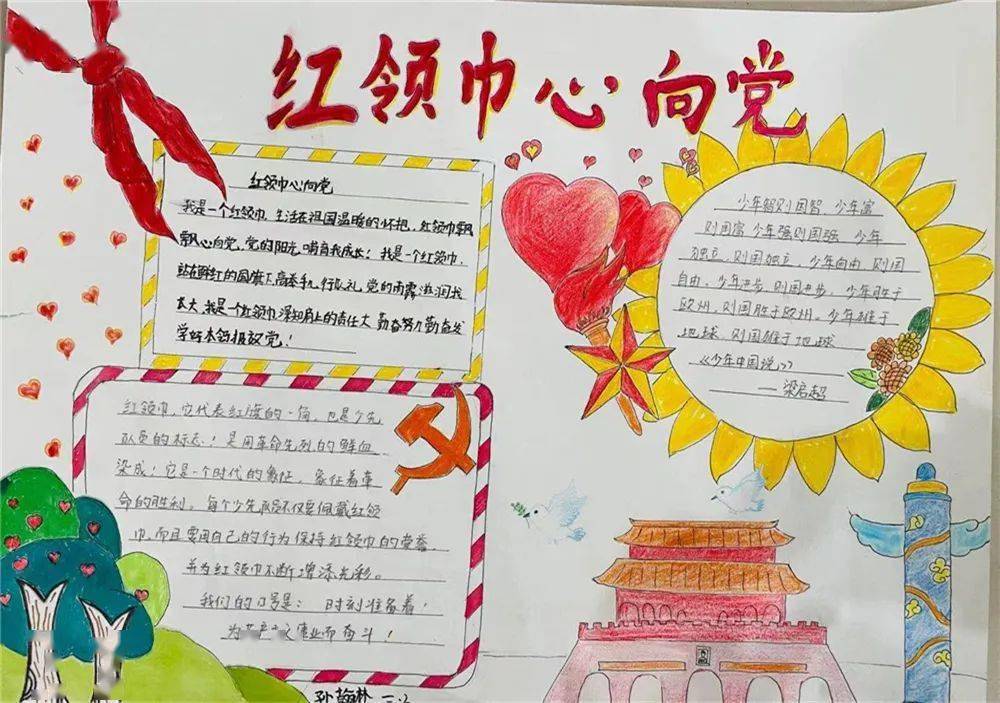 红领巾心向党
红领巾心向党
我是一个红领巾,生活在祖国温暖的怀抱,红领巾飘
飘心向党,党的阳光,哺育我成长!我是一个红领巾,
站在鲜红的国旗下,高奏礼行队礼,党的雨露滋润我
长大,我是个红领巾深知肩上的责任大,勤奋努力勤奋发
学好本领报效党!
红领巾,它代表红旗的一角,也是少先
队员的标志!是用革命先烈的鲜血
染成!它是一个时代的象征,象征着革
命的胜利。每个少先队员不仅要佩戴红领
巾,而且要用自己的行为保持红领巾的荣誉
并为红领巾不断增添光彩。
我们的口号是: 时刻准备着!
为共产主义事业而奋斗!
少年智则国智,少年富
则国富,少年强则国强,少年
独立,则国独立,少年自由,则国
自由,少年进步,则国进步,少年胜于
欧州,则国胜于欧州。少年雄于
地球,则国雄于地球
《少年中国说》
——梁启超
孙翰林